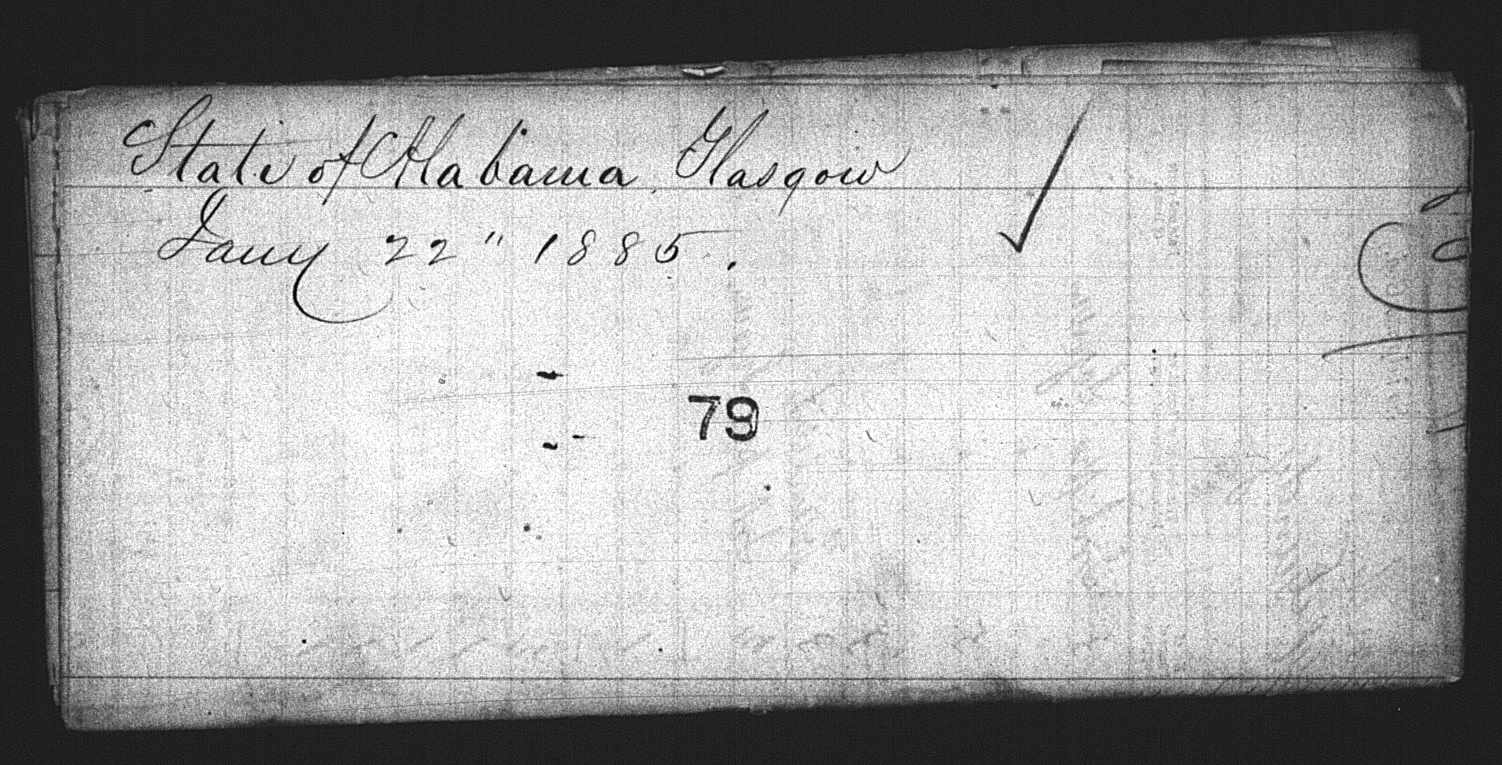 State of Alabama. Glasgow
Jany 22" 1885.
79